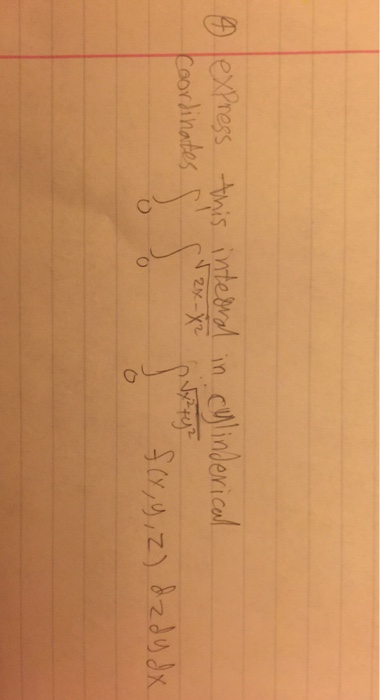 ④ express this integral in cylinderical
coordinates ∫₀¹ ∫₀^√(2x-x²) ∫₀^√(x²+y²) f(x,y,z) dzdydx